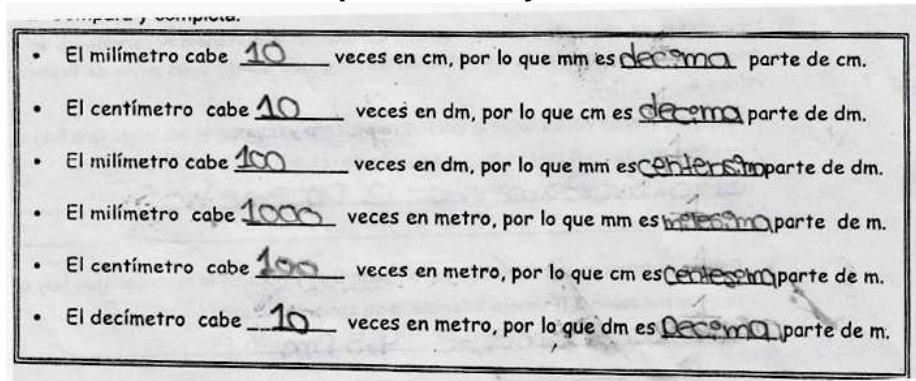 compara y completa.
• El milímetro cabe 10 veces en cm, por lo que mm es decima parte de cm.
• El centímetro cabe 10 veces en dm, por lo que cm es decema parte de dm.
• El milímetro cabe 100 veces en dm, por lo que mm es parte de dm.
• El milímetro cabe 1000 veces en metro, por lo que mm es parte de m.
• El centímetro cabe 100 veces en metro, por lo que cm es parte de m.
• El decímetro cabe 10 veces en metro, por lo que dm es Decima parte de m.